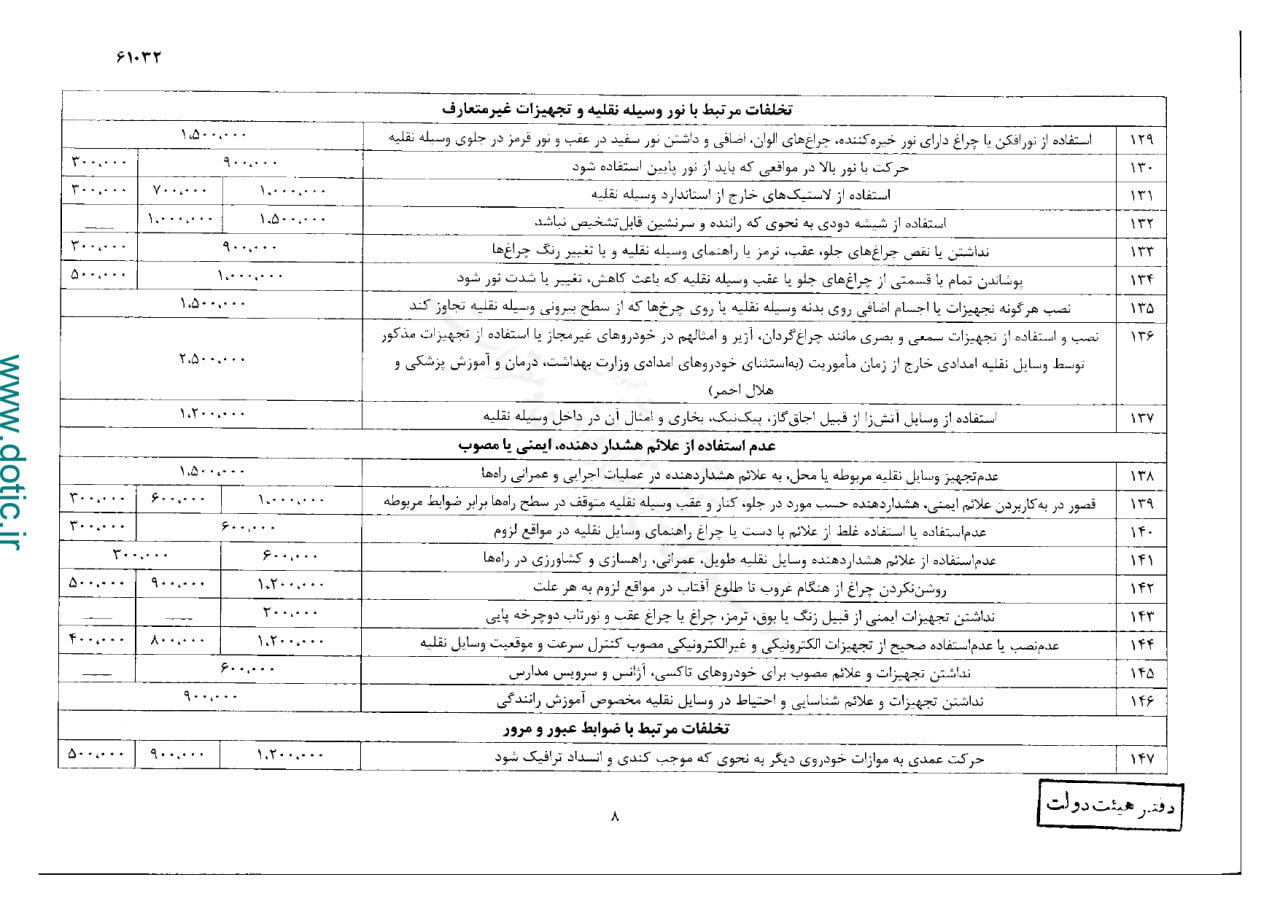 ۶۱۰۳۲
تخلفات مرتبط با نور وسیله نقلیه و تجهیزات غیرمتعارف
۱۲۹ استفاده از نورافکن یا چراغ دارای نور خیره‌کننده، چراغ‌های الوان، اضافی و داشتن نور سفید در عقب و نور قرمز در جلوی وسیله نقلیه ۱،۵۰۰،۰۰۰
۱۳۰ حرکت با نور بالا در مواقعی که باید از نور پایین استفاده شود ۹۰۰،۰۰۰ ۳۰۰،۰۰۰
۱۳۱ استفاده از لاستیک‌های خارج از استاندارد وسیله نقلیه ۱،۰۰۰،۰۰۰ ۷۰۰،۰۰۰ ۳۰۰،۰۰۰
۱۳۲ استفاده از شیشه دودی به نحوی که راننده و سرنشین قابل‌تشخیص نباشد ۱،۵۰۰،۰۰۰ ۱،۰۰۰،۰۰۰ __
۱۳۳ نداشتن یا نقص چراغ‌های جلو، عقب، ترمز یا راهنمای وسیله نقلیه و یا تغییر رنگ چراغ‌ها ۹۰۰،۰۰۰ ۳۰۰،۰۰۰
۱۳۴ پوشاندن تمام یا قسمتی از چراغ‌های جلو یا عقب وسیله نقلیه که باعث کاهش، تغییر یا شدت نور شود ۱،۰۰۰،۰۰۰ ۵۰۰،۰۰۰
۱۳۵ نصب هرگونه تجهیزات یا اجسام اضافی روی بدنه وسیله نقلیه یا روی چرخ‌ها که از سطح بیرونی وسیله نقلیه تجاوز کند ۱،۵۰۰،۰۰۰
۱۳۶ نصب و استفاده از تجهیزات سمعی و بصری مانند چراغ‌گردان، آژیر و امثالهم در خودروهای غیرمجاز یا استفاده از تجهیزات مذکور
توسط وسایل نقلیه امدادی خارج از زمان مأموریت (به‌استثنای خودروهای امدادی وزارت بهداشت، درمان و آموزش پزشکی و ۲،۵۰۰،۰۰۰
هلال احمر)
۱۳۷ استفاده از وسایل آتش‌زا از قبیل اجاق‌گاز، پیک‌نیک، بخاری و امثال آن در داخل وسیله نقلیه ۱،۲۰۰،۰۰۰
عدم استفاده از علائم هشدار دهنده، ایمنی یا مصوب
۱۳۸ عدم‌تجهیز وسایل نقلیه مربوطه یا محل، به علائم هشداردهنده در عملیات اجرایی و عمرانی راه‌ها ۱،۵۰۰،۰۰۰
۱۳۹ قصور در به‌کاربردن علائم ایمنی، هشداردهنده حسب مورد در جلو، کنار و عقب وسیله نقلیه متوقف در سطح راه‌ها برابر ضوابط مربوطه ۱،۰۰۰،۰۰۰ ۶۰۰،۰۰۰ ۳۰۰،۰۰۰
۱۴۰ عدم‌استفاده یا استفاده غلط از علائم با دست یا چراغ راهنمای وسایل نقلیه در مواقع لزوم ۶۰۰،۰۰۰ ۳۰۰،۰۰۰
۱۴۱ عدم‌استفاده از علائم هشداردهنده وسایل نقلیه طویل، عمرانی، راهسازی و کشاورزی در راه‌ها ۶۰۰،۰۰۰ ۳۰۰،۰۰۰
۱۴۲ روشن‌نکردن چراغ از هنگام غروب تا طلوع آفتاب در مواقع لزوم به هر علت ۱،۲۰۰،۰۰۰ ۹۰۰،۰۰۰ ۵۰۰،۰۰۰
۱۴۳ نداشتن تجهیزات ایمنی از قبیل زنگ یا بوق، ترمز، چراغ یا چراغ عقب و نورتاب دوچرخه پایی ۲۰۰،۰۰۰ __ __
۱۴۴ عدم‌نصب یا عدم‌استفاده صحیح از تجهیزات الکترونیکی و غیرالکترونیکی مصوب کنترل سرعت و موقعیت وسایل نقلیه ۱،۲۰۰،۰۰۰ ۸۰۰،۰۰۰ ۴۰۰،۰۰۰
۱۴۵ نداشتن تجهیزات و علائم مصوب برای خودروهای تاکسی، آژانس و سرویس مدارس ۶۰۰،۰۰۰ __
۱۴۶ نداشتن تجهیزات و علائم شناسایی و احتیاط در وسایل نقلیه مخصوص آموزش رانندگی ۹۰۰،۰۰۰
تخلفات مرتبط با ضوابط عبور و مرور
۱۴۷ حرکت عمدی به موازات خودروی دیگر به نحوی که موجب کندی و انسداد ترافیک شود ۱،۲۰۰،۰۰۰ ۹۰۰،۰۰۰ ۵۰۰،۰۰۰
دفتر هیئت دولت
۸
www.dotic.ir